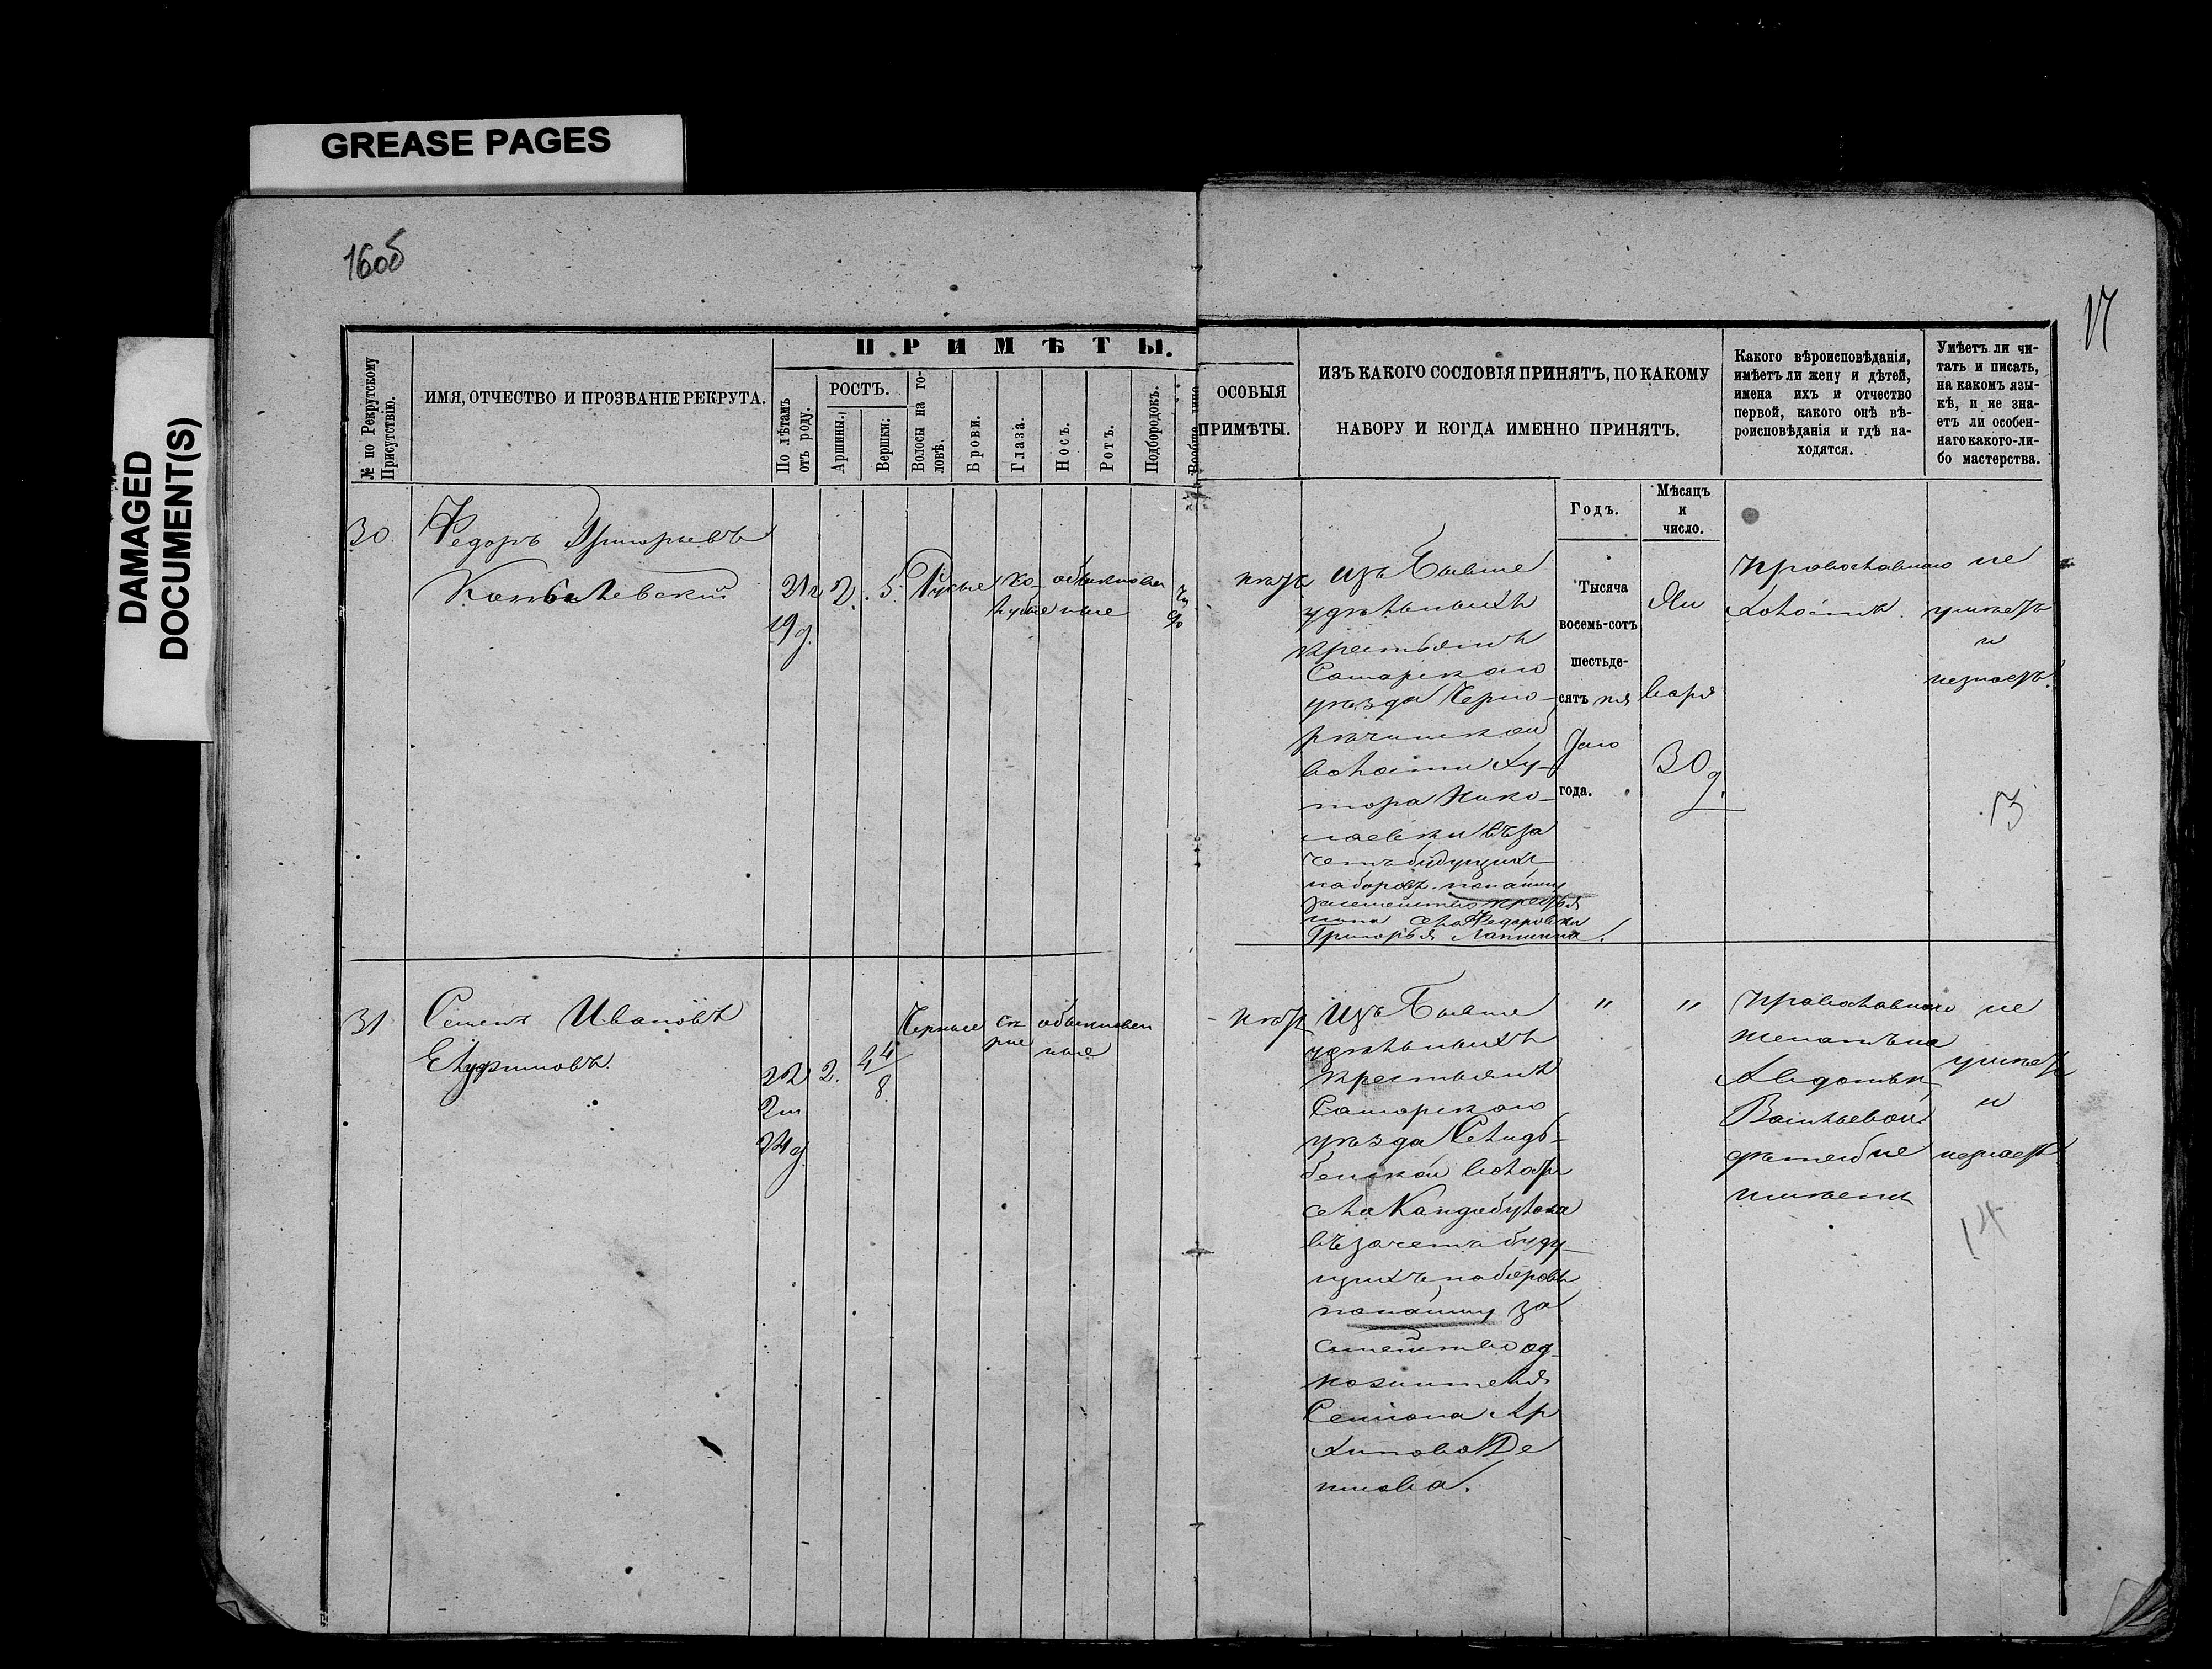 GREASE PAGES
DAMAGED
DOCUMENT(S)
16об
17
№ по Рекрутскому
Присутствію.
ИМЯ, ОТЧЕСТВО И ПРОЗВАНІЕ РЕКРУТА.
ПРИМѢТЫ.
По лѣтамъ
отъ роду.
РОСТЪ.
Аршины.
Вершки.
Волосы на го-
ловѣ.
Брови.
Глаза.
Носъ.
Ротъ.
Подбородокъ.
ОСОБЫЯ
ПРИМѢТЫ.
ИЗЪ КАКОГО СОСЛОВІЯ ПРИНЯТЪ, ПО КАКОМУ
НАБОРУ И КОГДА ИМЕННО ПРИНЯТЪ.
Какого вѣроисповѣданія,
имѣетъ ли жену и дѣтей,
имена ихъ и отчество
первой, какого онѣ вѣ-
роисповѣданія и гдѣ на-
ходятся.
Умѣетъ ли чи-
тать и писать,
на какомъ язы-
кѣ, и не зна-
етъ ли особен-
наго какого-ли-
бо мастерства.
Годъ.
Мѣсяцъ
и
число.
30.
Федоръ Григорьевъ
21
19 д.
2.
5.
Русые
го-
лубые
обыкновен
ные
нѣтъ
изъ бывше
удѣльныхъ
крестьянъ
Самарскаго
уѣзда Черно-
рѣчинской
волости Ху-
тора Нико-
лаевки въ за
четъ будущихъ
наборовъ
села Федоровки
Григорья Лапшина.
Тысяча
восемь-сотъ
шестьде-
сятъ пя
таго
года.
Ян
варя
30 д.
православнаго
холостъ.
не
умѣетъ
и
незнаетъ.
13
31
Семенъ Ивановъ
22
2 м
24 д.
2.
4 4/8
Черные
сѣ
рые
обыкновен
ные
нѣтъ
изъ бывше
удѣльныхъ
крестьянъ
Самарскаго
уѣзда
волости
села
въ зачетъ буду-
щихъ наборовъ
за
Семиона Ар
хипова Де
нисова.
"
"
православнаго
женатъ на
Авдотьи
Васильевой
дѣтей не
имѣетъ
не
умѣетъ
и
незнаетъ
14